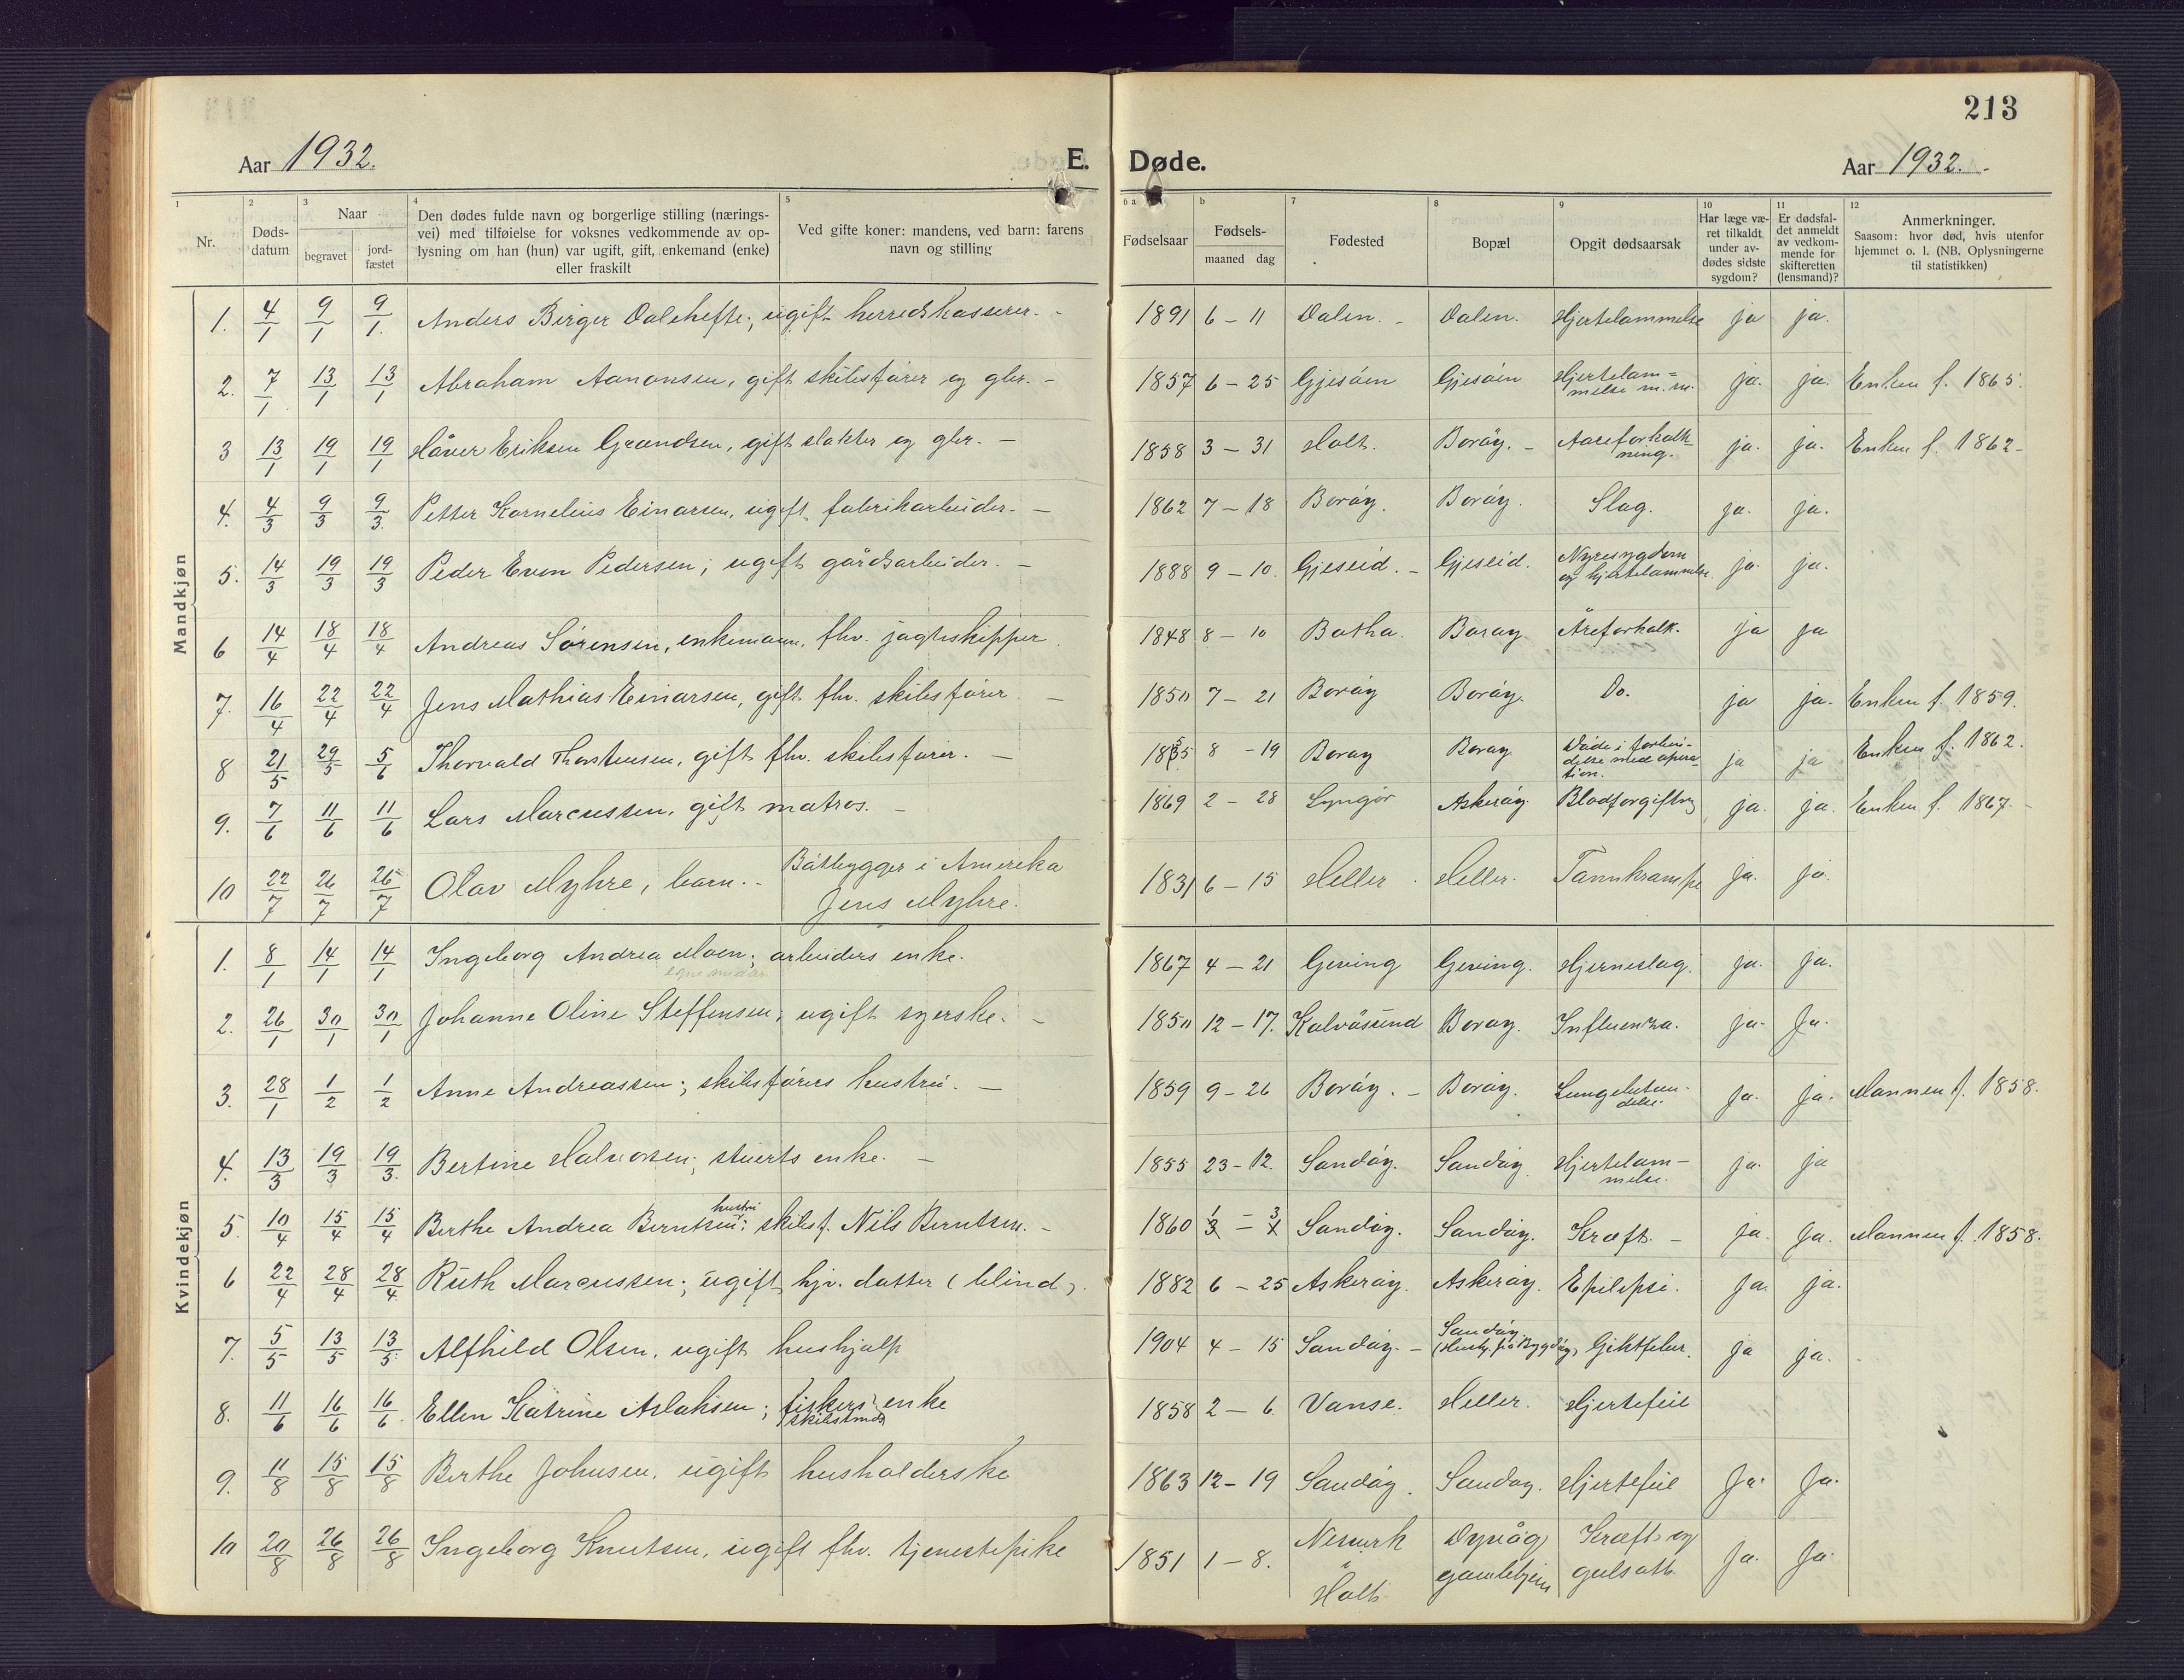 213
Aar 1932.
E. Døde.
Aar 1932.
1 2 3 4 5 6 a b 7 8 9 10 11 12
Nr.
Døds-
datum
Naar
begravet
jord-
fæstet
Den dødes fulde navn og borgerlige stilling (nærings-
vei) med tilføielse for voksnes vedkommende av op-
lysning om han (hun) var ugift, gift, enkemand (enke)
eller fraskilt
Ved gifte koner: mandens, ved barn: farens
navn og stilling
Fødselsaar
Fødsels-
maaned dag
Fødested
Bopæl
Opgit dødsaarsak
Har læge væ-
ret tilkaldt
under av-
dødes sidste
sygdom?
Er dødsfal-
det anmeldt
av vedkom-
mende for
skifteretten
(lensmand)?
Anmerkninger.
Saasom: hvor død, hvis utenfor
hjemmet o. l. (NB. Oplysningerne
til statistikken)
Mandkjøn
1. 4/1 9/1 9/1. Anders Birger Dalehefte; ugift herredskasserer. - 1891 6 - 11 Dalen. - Dalen. Hjertelammelse ja ja.
2. 7/1 13/1 13/1 Abraham Aanonsen, gift skibsfører og gbr. - 1857 6 - 25 Gjesöen Gjesöen Hjertelam=
melse m. m. ja. ja. Enken f. 1865.
3 13/1 19/1 19/1 Håver Eriksen Grændsen, gift slakter og gbr. - 1858 3 - 31 Holt. Boröy. - Aareforkalk-
ning. ja. ja. Enken f. 1862 -
4. 4/3 9/3 9/3. Petter Kornelius Einarsen, ugift fabrikarbeider. - 1862 7 - 18 Boröy. Boröy. Slag. ja. ja.
5. 14/3 19/3 19/3 Peder Even Pedersen; ugift gårdsarbeider. - 1888 9 - 10. Gjeseid. - Gjeseid. Nyresygdom
og hjertelammelse. ja. ja.
6 14/4 18/4 18/4 Andreas Sørensen, enkemann, fhv. jagtskipper 1848 8 - 10 Bota. Boroy Åreforkalk. ja ja
7. 16/4 22/4 22/4 Jens Mathias Einarsen, gift fhv. skibsfører. - 1850 7 - 21 Boröy Boröy. Do. ja ja. Enken f. 1859.
8 21/5 29/5 5/6 Thorvald Thorstensen, gift fhv. skibsfører. - 1855 8 - 19 Boroy Boroy Døde i forbin-
delse med opera-
tion. ja ja Enken f. 1862.
9. 7/6 11/6 11/6 Lars Marcussen, gift matros. - 1869 2 - 28 Lyngör Askeröy. Blodforgiftng ja. ja. Enken f. 1867. -
10 22/7 26/7 26/7 Olav Myhre, barn. - Båtbygger i Amerika
Jens Myhre. 1831 6 - 15 Heller Heller. Tannkrampe ja. ja.
Kvindekjøn
1. 8/1 14/1 14/1 Ingeborg Andrea Moen; arbeiders enke. 1867 4 - 21 Geving Geving. Hjerneslag. ja. ja.
2. 26/1 30/1 30/1 Johanne Oline Steffensen; ugift syerske. - 1850 12 - 17. Kalvösund Boroy. Influenza. ja. Ja.
3. 28/1 1/2 1/2 Anne Andreassen; skibsførers hustru. - 1859 9 - 26 Boröy. - Boröy. Lungebeten-
delse. Ja. ja. Mannen f. 1858.
4. 13/3 19/3 19/3. Bertine Halvorsen; stuerts enke. - 1855 23 - 12. Sandöy. Sandöy. Hjertelam-
melse. ja. ja
5. 10/4 15/4 15/4 Berthe Andrea Berntsen; hustru skibsf. Nils Berntsen. - 1860 1 3 - 3 1 Sandöy. Sandöy. Kræft. - ja. Ja. Mannen f. 1858.
6 22/4 28/4 28/4 Ruth Marcussen; ugift hjv. datter (blind). 1882 6 - 25 Askeröy. Askeröy. Epilepsi. Ja. ja.
7. 5/5 13/5 13/5. Alfhild Olsen, ugift hushjælp 1904 4 - 15 Sandöy. - Sandöy. Giktfeber. ja ja.
8. 11/6 16/6 16/6. Ellen Katrine Aslaksen; fiskers enke
skibstmds 1858 2 - 6. Vanse. Heller. Hjertefeil
9. 11/8 15/8 15/8 Berthe Johnsen, ugift husholderske 1863 12 - 19 Sandöy. Sandoy. Hjertefeil Ja. Ja.
10 20/8 26/8 26/8 Ingeborg Knutsen, ugift fhv. tjenestepike 1851 1 - 8. Neswerk
i
Holt Dypvåg
gamlehjem Kræft og
gulsott. Ja. Ja.